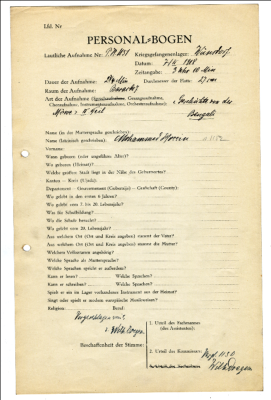 Lfd. Nr
PERSONAL-BOGEN
Lautliche Aufnahme Nr.: P.K. Kriegsgefangenenlager: Wünsdorf
Datum: 1918
Zeitangabe: 3 Uhr 10 Min
Dauer der Aufnahme: Durchmesser der Platte: 27 cm
Raum der Aufnahme: Baracke
Art der Aufnahme (Sprechaufnahme, Gesangsaufnahme, Geschichte von der
Choraufnahme, Instrumentenaufnahme, Orchesteraufnahme):
Bengali
Name (in der Muttersprache geschrieben):
Name (lateinisch geschrieben): Mohammed Hossin
Vorname:
Wann geboren (oder ungefähres Alter)?
Wo geboren (Heimat)?
Welche größere Stadt liegt in der Nähe des Geburtsortes?
Kanton – Kreis (Ujedz):
Department – Gouvernement (Gubernija) – Grafschaft (County):
Wo gelebt in den ersten 6 Jahren?
Wo gelebt vom 7. bis 20. Lebensjahr?
Was für Schulbildung?
Wo die Schule besucht?
Wo gelebt vom 20. Lebensjahr?
Aus welchem Ort (Ort und Kreis angeben) stammt der Vater?
Aus welchem Ort (Ort und Kreis angeben) stammt die Mutter?
Welchem Volksstamm angehörig?
Welche Sprache als Muttersprache?
Welche Sprachen spricht er außerdem?
Kann er lesen? Welche Sprachen?
Kann er schreiben? Welche Sprachen?
Spielt er ein im Lager vorhandenes Instrument aus der Heimat?
Singt oder spielt er modern europäische Musikweisen?
Religion: Beruf:
Vorgeschlagen von:
Beschaffenheit der Stimme:
1. Urteil des Fachmannes
(des Assistenten):
2. Urteil des Kommissars:
Wilh. Doegen